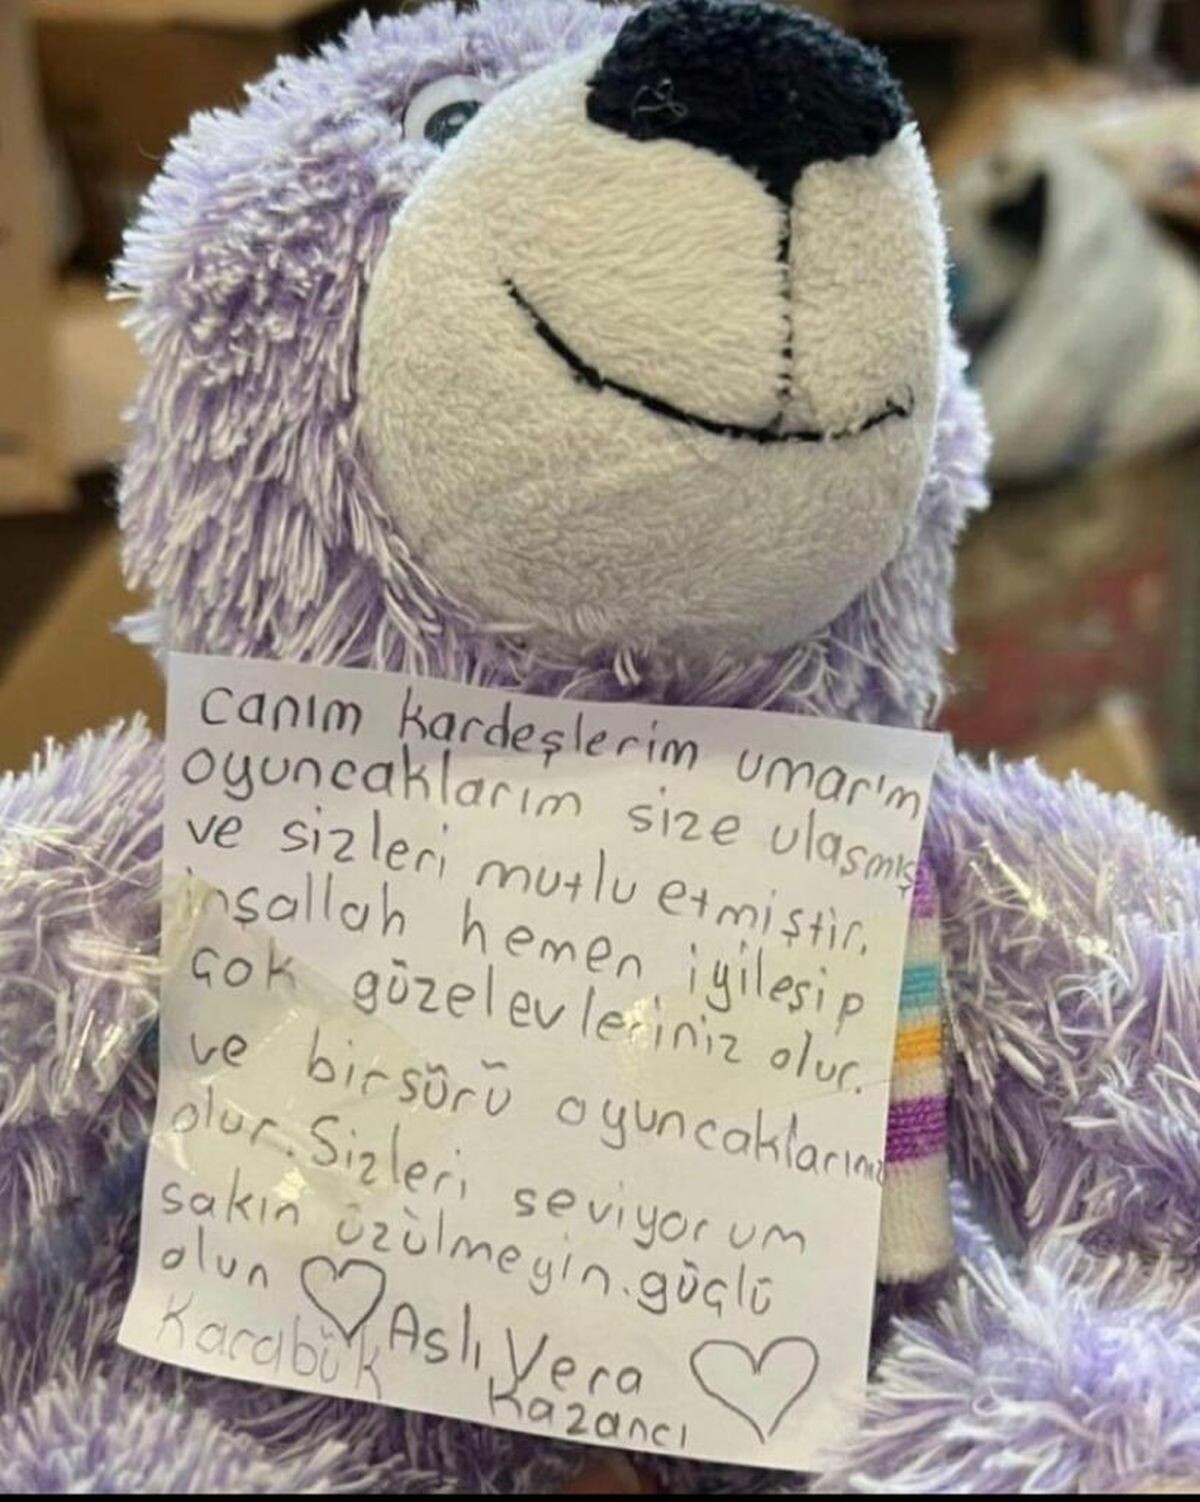 canım kardeşlerim umarım
oyuncaklarım size ulaşmış
ve sizleri mutlu etmiştir.
inşallah hemen iyileşip
çok güzel evleriniz olur.
ve birsürü oyuncaklarınız
olur. Sizleri seviyorum
sakın üzülmeyin. güçlü
olun Aslı Vera
Karabük Kazancı